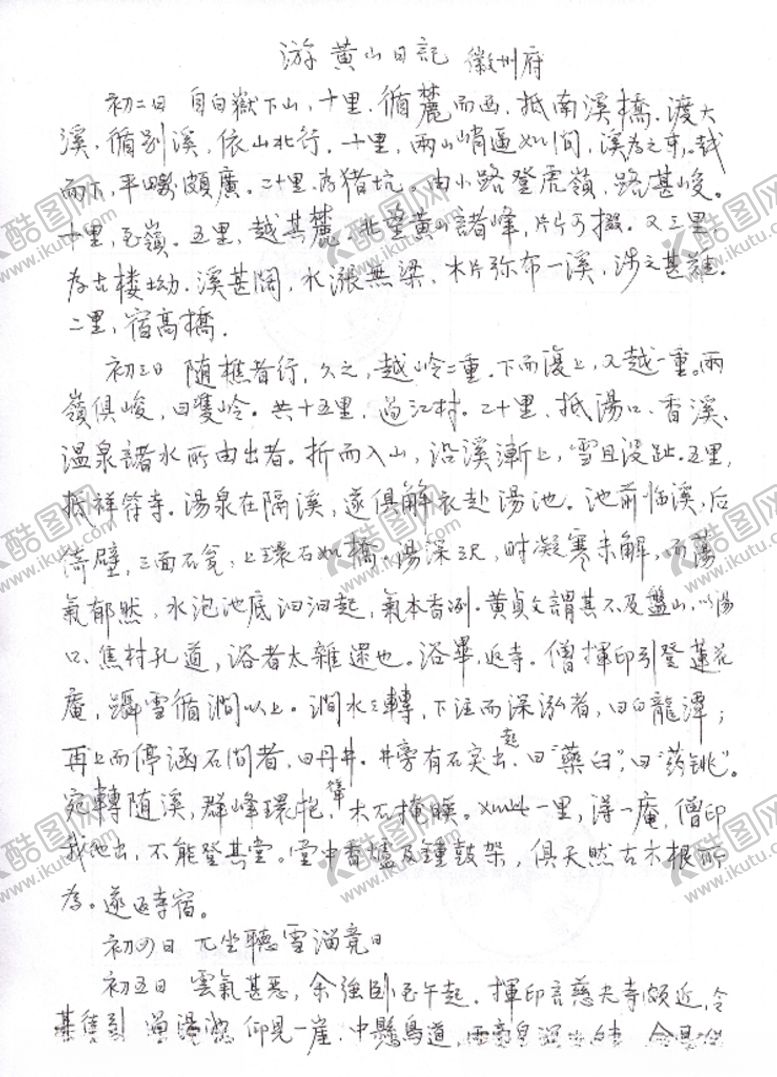 游黄山日記 徽州府
初二日 自白嶽下山，十里，循麓而西，抵南溪橋。渡大
溪，循别溪，依山北行。十里，兩山峭逼如門，溪为之束。越
而下，平疇頗廣。二十里，为猪坑。由小路登虎嶺，路甚峻。
十里，至嶺。五里，越其麓。北望黄山諸峰，片片可掇。又三里，
为古楼坳。溪甚阔，水漲無梁，木片弥布一溪，涉之甚難。
二里，宿高橋。
初三日 随樵者行，久之，越岭二重。下而復上，又越一重。兩
嶺俱峻，曰雙岭。共十五里，過江村。二十里，抵湯口，香溪、
温泉諸水所由出者。折而入山，沿溪漸上，雪且没趾。五里，
抵祥符寺。湯泉在隔溪，遂俱解衣赴湯池。池前临溪，后
倚壁，三面石甃，上環石如橋。湯深三尺，时凝寒未解，而湯
氣郁然，水泡池底汩汩起，氣本香冽。黄貞父謂其不及盤山，以湯
口、焦村孔道，浴者太雜遝也。浴畢，返寺。僧揮印引登蓮花
庵，躡雪循澗以上。澗水三轉，下注而深泓者，曰白龍潭；
再上而停涵石間者，曰丹井。井旁有石突起，曰“藥臼”，曰“药铫”。
宛轉随溪，群峰環耸，木石掩映。一里，得一庵，僧印
我他出，不能登其堂。堂中香爐及鍾鼓架，俱天然古木根所
为。遂返寺宿。
初四日 兀坐聽雪溜竟日
初五日 雲氣甚恶，余強卧至午起。揮印言慈光寺頗近，令
其徒引 過湯池，仰見一崖，中懸鳥道，兩旁泉